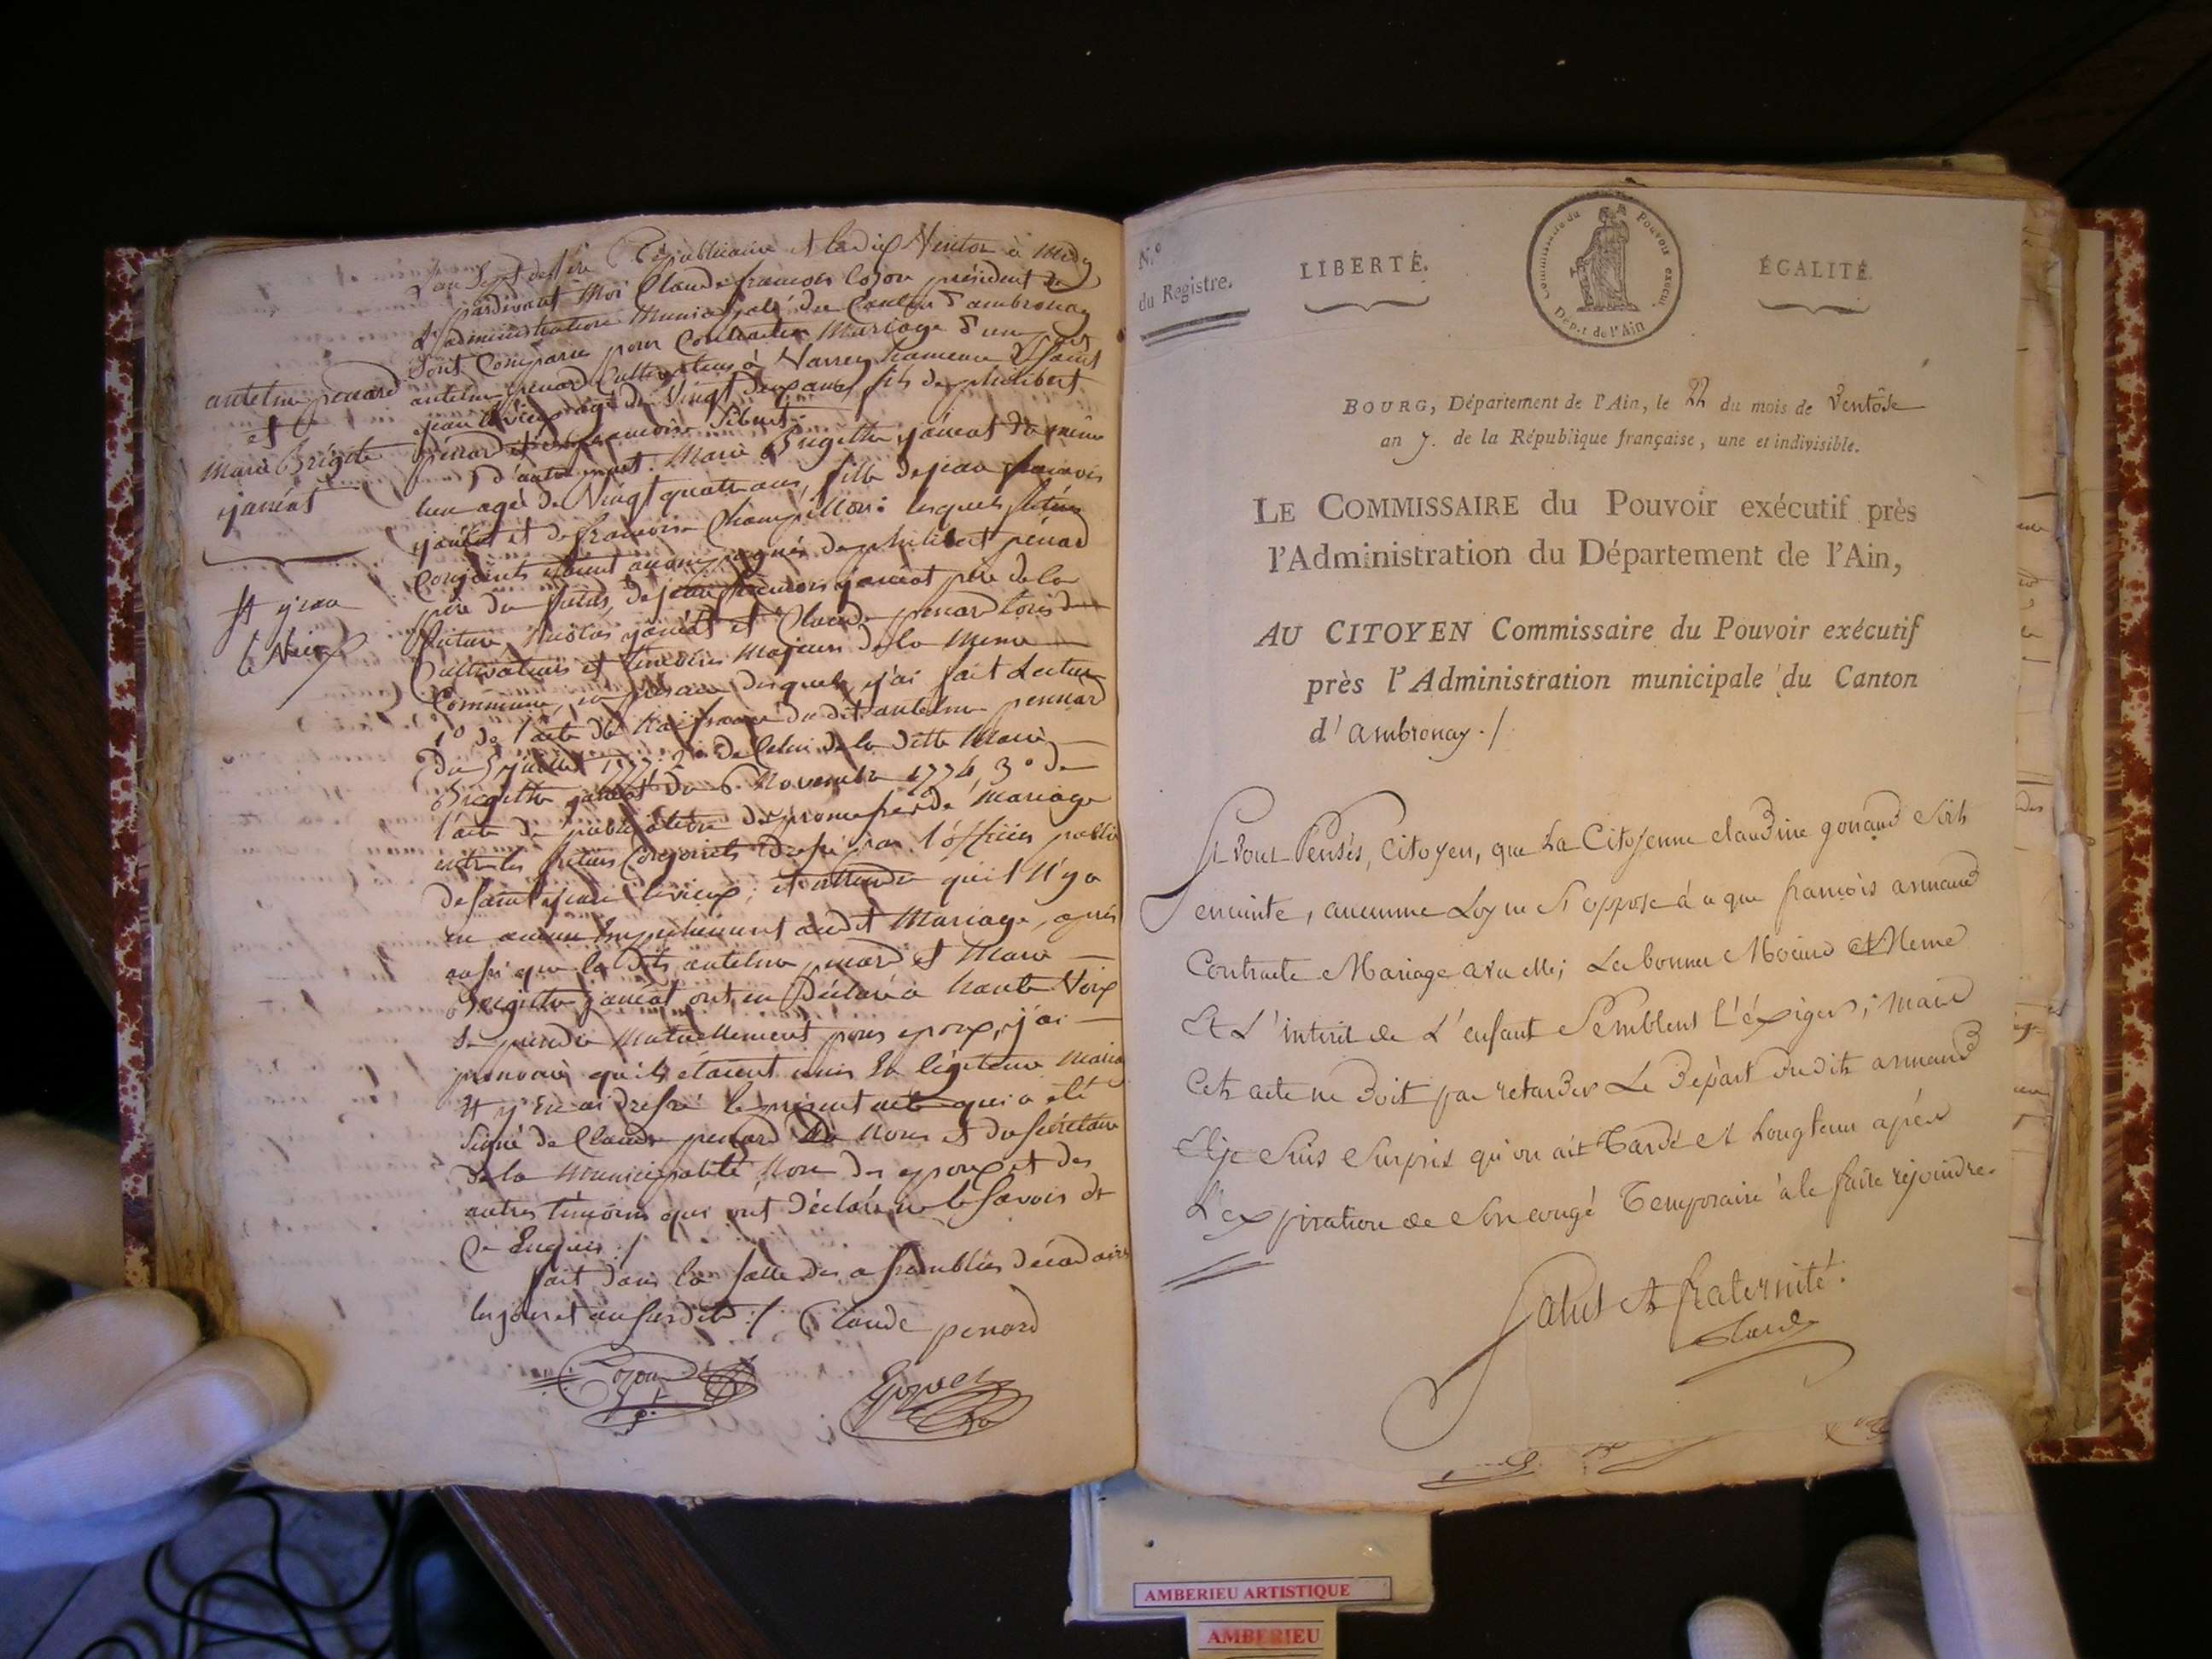 L'an Sept de l'ère Républicaine et le dix Ventose à Midy
pardevant Moi Claude françois Cozon président de
L'administration Municipale du Canton d'ambronay
Sont Comparu pour Contracter Mariage d'une part
antelme penard Cultivateur à Varrey hameau de Saint
jean le Vieux agé de Vingt deux ans, fils de philibert
penard et de francoise Sibert.
D'autre part. Marie Brigitte janéat du même
lieu agée de Vingt quatre ans, fille de jean francois
janéat et de francoise Champillon: lesquels futurs
Conjoints étaient accompagnés de philibert penard
père du futur, de jean francois janéat père de la
future Nicolas janéat et Claude penard tous
Cultivateurs et témoins Majeurs de la Meme
Commune, en présence desquels j'ai fait Lecture
1º de l'acte de Naissance du dit antelme pennard
Du 5 juillet 1777. 2º de Celui de la ditte Marie
Brigitte janéat du 6 Novembre 1774, 3º de
l'acte de publication de promesse de Mariage
entre les futurs Conjoints dressé par l'officier public
de saint jean levieux; et attendu qu'il N'y a
eu aucun Empechement audit Mariage, après
aussi que les dits antelme penard et Marie
Brigitte janéat ont eu Déclaré à haute Voix
Se prendre Mutuellement pour epoux, j'ai
prononcé qu'ils étaient unis En légitime Mariage
Et j'En ai dressé le présent acte qui a été
Signé de Claude penard de Nous et du Secrétaire
de la Municipalité Non des epoux et des
autres témoins qui ont Déclaré ne le Savoir de
Ce Enquis ./
fait dans la Salle des assemblées décadaires
les jour et an susdits ./ Claude penard
Cozon
pt.
antelme penard
et
Marie Brigite
janéat
St jean
le Vieux
N.º
du Registre.
LIBERTÉ.
Commissaire du Pouvoir exécut.
Dép.t de l'Ain
ÉGALITÉ.
BOURG, Département de l'Ain, le 22 du mois de Ventôse
an 7. de la République française, une et indivisible.
LE COMMISSAIRE du Pouvoir exécutif près
l'Administration du Département de l'Ain,
AU CITOYEN Commissaire du Pouvoir exécutif
près l'Administration municipale du Canton
d'ambronay ./
Si Vous Pensés, Citoyen, que La Citoyenne claudine gonand Soit
enceinte, aucunne Loy ne S'oppose à ce que françois armand
Contracte Mariage avec elle; Les bonnes Moeurs et Meme
Et L'intérêt de L'enfant Semblent L'éxiger; mais
Cet acte ne Doit pas retarder Le Départ dudit armand
Et je Suis Surpris qu'on ait Tardé Si Longtems après
L'expiration de Son congé Temporaire à le faire rejoindre.
Salut et fraternité.
AMBERIEU ARTISTIQUE
AMBERIEU